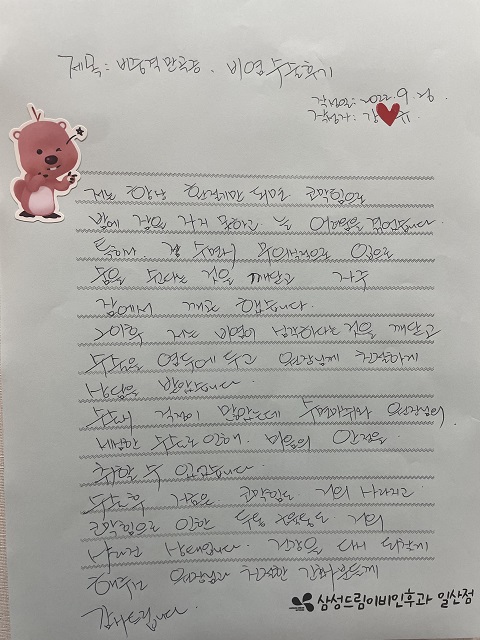 제목: 비중격만곡증, 비염 수술후기
작성일: 2022. 9. 26.
작성자: 강 유
저는 항상 환절기만 되면 코막힘으로
밤에 잠을 자지 못하고 늘 어려움을 겪었습니다
특히나 수면시 무의식적으로 입으로
숨을 쉰다는 것을 깨닫고 자주
잠에서 깨곤 했습니다.
그이후 저는 비염이 심각하다는 것을 깨닫고
수술을 염두에 두고 원장님께 친절하게
상담을 받았습니다.
수술이 걱정이 많았는데 수면마취와 원장님의
세심한 수술로 인해 마음의 안정을
취할 수 있었습니다
수술후 지금은 코막힘도 거의 사라지고
코막힘으로 인한 두통 후유증도 거의
사라진 상태입니다. 건강을 다시 되찾게
해주신 원장님과 친절한 간호사분들께
감사드립니다.
삼성드림이비인후과 일산점